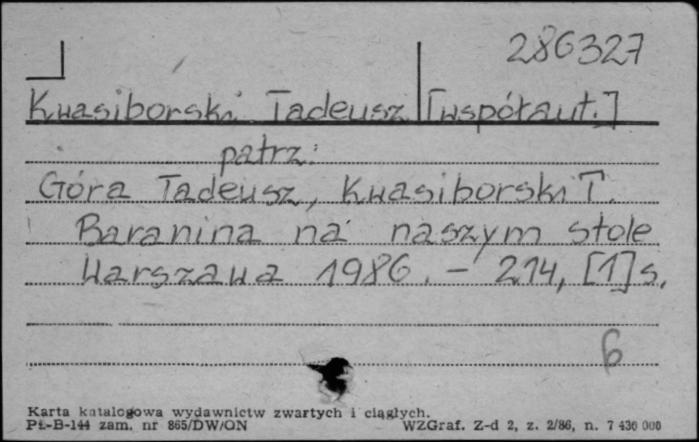 286327
Kwasiborski Tadeusz [współaut.]
patrz:
Góra Tadeusz, Kwasiborski T.
Baranina na naszym stole
Warszawa 1986. - 214, [1] s.
6
Karta katalogowa wydawnictw zwartych i ciągłych.
PŁ-B-144 zam. nr 865/DW/ON WZGraf. Z-d 2, z. 2/86, n. 7 430 000